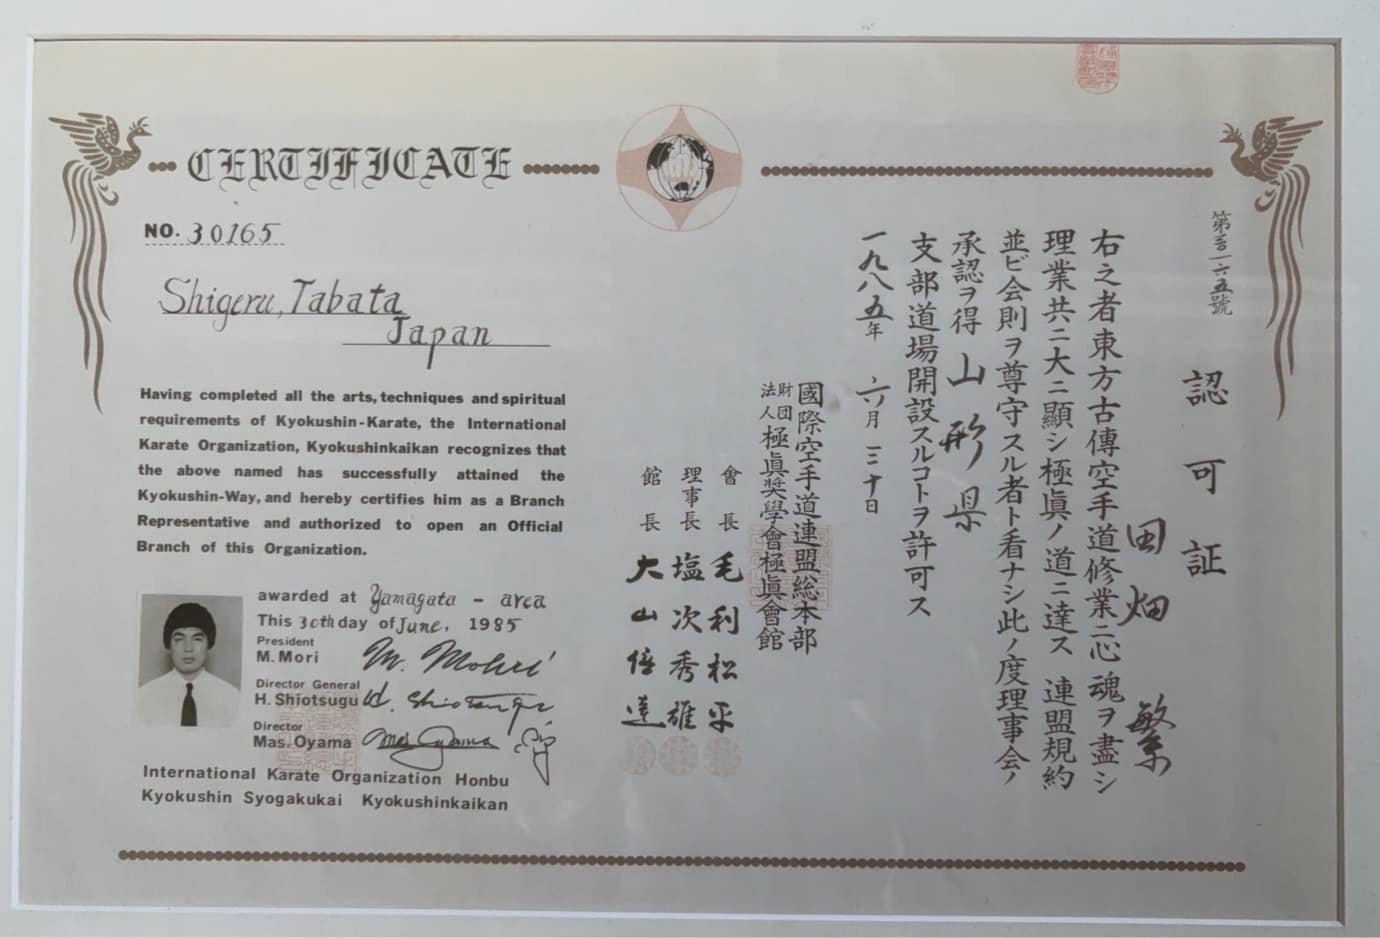 CERTIFICATE
NO. 30165
Shigeru, Tabata
Japan
Having completed all the arts, techniques and spiritual
requirements of Kyokushin-Karate, the International
Karate Organization, Kyokushinkaikan recognizes that
the above named has successfully attained the
Kyokushin-Way, and hereby certifies him as a Branch
Representative and authorized to open an Official
Branch of this Organization.
awarded at Yamagata - area
This 30th day of June, 1985
President
M. Mori
M. Mohri
Director General
H. Shiotsugu
H. Shiotsugu
Director
Mas. Oyama
Mas Oyama
International Karate Organization Honbu
Kyokushin Syogakukai Kyokushinkaikan
第三〇一六五號
認可証
田畑 繁
右之者東方古傳空手道修業ニ心魂ヲ盡シ
理業共ニ大ニ顯シ極眞ノ道ニ達ス 連盟規約
並ビ会則ヲ尊守スル者ト看ナシ此ノ度理事会ノ
承認ヲ得 山形県
支部道場開設スルコトヲ許可ス
一九八五年 六月 三十日
國際空手道連盟総本部
財団法人 極眞奨學會極眞會館
會長 毛利松平
理事長 塩次秀雄
館長 大山倍達